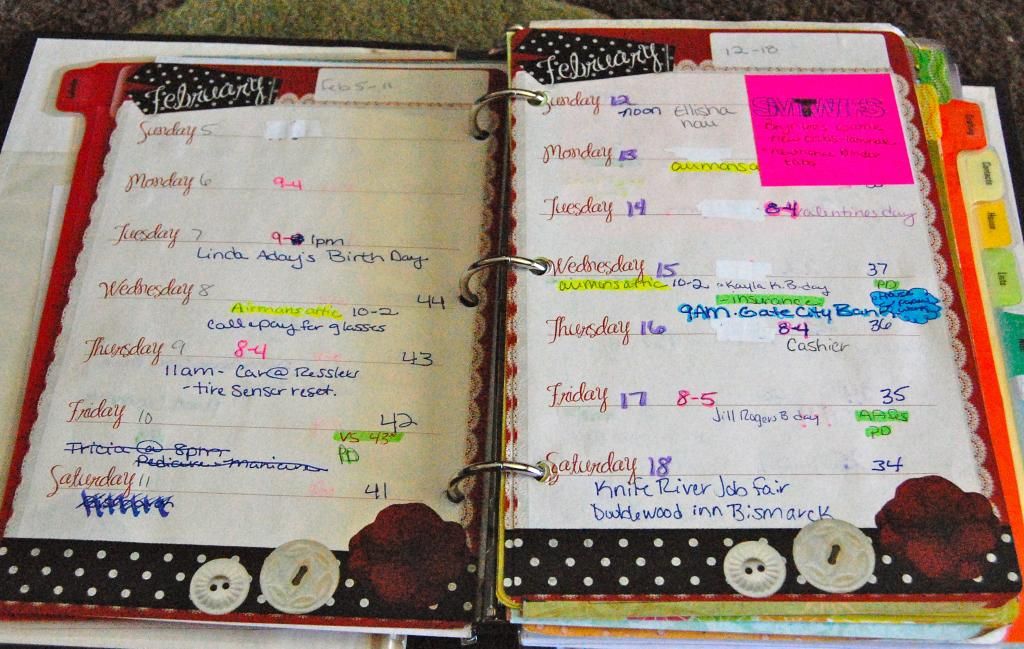 February
Feb 5-11
Sunday 5
Monday 6
9-4
Tuesday 7
9- 1pm
Linda Aday's Birth Day
Wednesday 8
44
Airmans attic 10-2
Call & pay for glasses
Thursday 9 8-4 43
11am - Car @ Resslers
- tire Sensor reset.
Friday 10
42
VS 43°
PD
Tricia @ 8pm
Pedicure - Manicure
Saturday 11
41
February
12-18
Sunday 12
noon
Monday 13
airmans a
Tuesday 14 8-4 valentines day
new
tabs
Wednesday 15 37
airmans attic 10-2 Kayla K. B-day PD
- insurance
9AM - Gate City Bank
Thursday 16 8-4 36
Cashier
Friday 17 8-5 35
Jill Rogers B day
PD
Saturday 18 34
Knife River Job fair
Doublewood inn Bismarck
Contacts